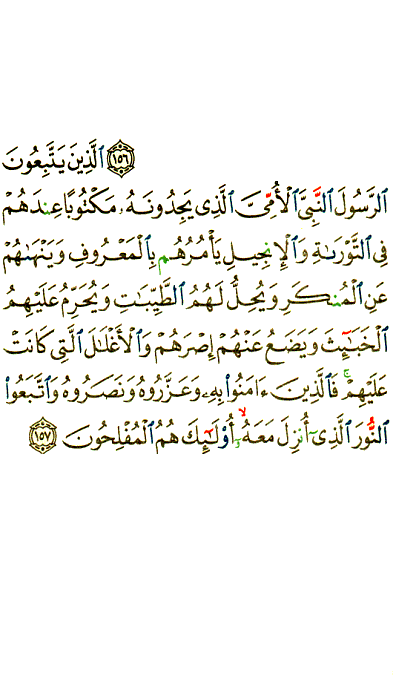 ۝١٥٦ ٱلَّذِينَ يَتَّبِعُونَ
ٱلرَّسُولَ ٱلنَّبِىَّ ٱلْأُمِّىَّ ٱلَّذِى يَجِدُونَهُۥ مَكْتُوبًا عِندَهُمْ
فِى ٱلتَّوْرَىٰةِ وَٱلْإِنجِيلِ يَأْمُرُهُم بِٱلْمَعْرُوفِ وَيَنْهَىٰهُمْ
عَنِ ٱلْمُنكَرِ وَيُحِلُّ لَهُمُ ٱلطَّيِّبَٰتِ وَيُحَرِّمُ عَلَيْهِمُ
ٱلْخَبَٰٓئِثَ وَيَضَعُ عَنْهُمْ إِصْرَهُمْ وَٱلْأَغْلَٰلَ ٱلَّتِى كَانَتْ
عَلَيْهِمْ ۚ فَٱلَّذِينَ ءَامَنُوا۟ بِهِۦ وَعَزَّرُوهُ وَنَصَرُوهُ وَٱتَّبَعُوا۟
ٱلنُّورَ ٱلَّذِىٓ أُنزِلَ مَعَهُۥٓ ۙ أُو۟لَٰٓئِكَ هُمُ ٱلْمُفْلِحُونَ ۝١٥٧